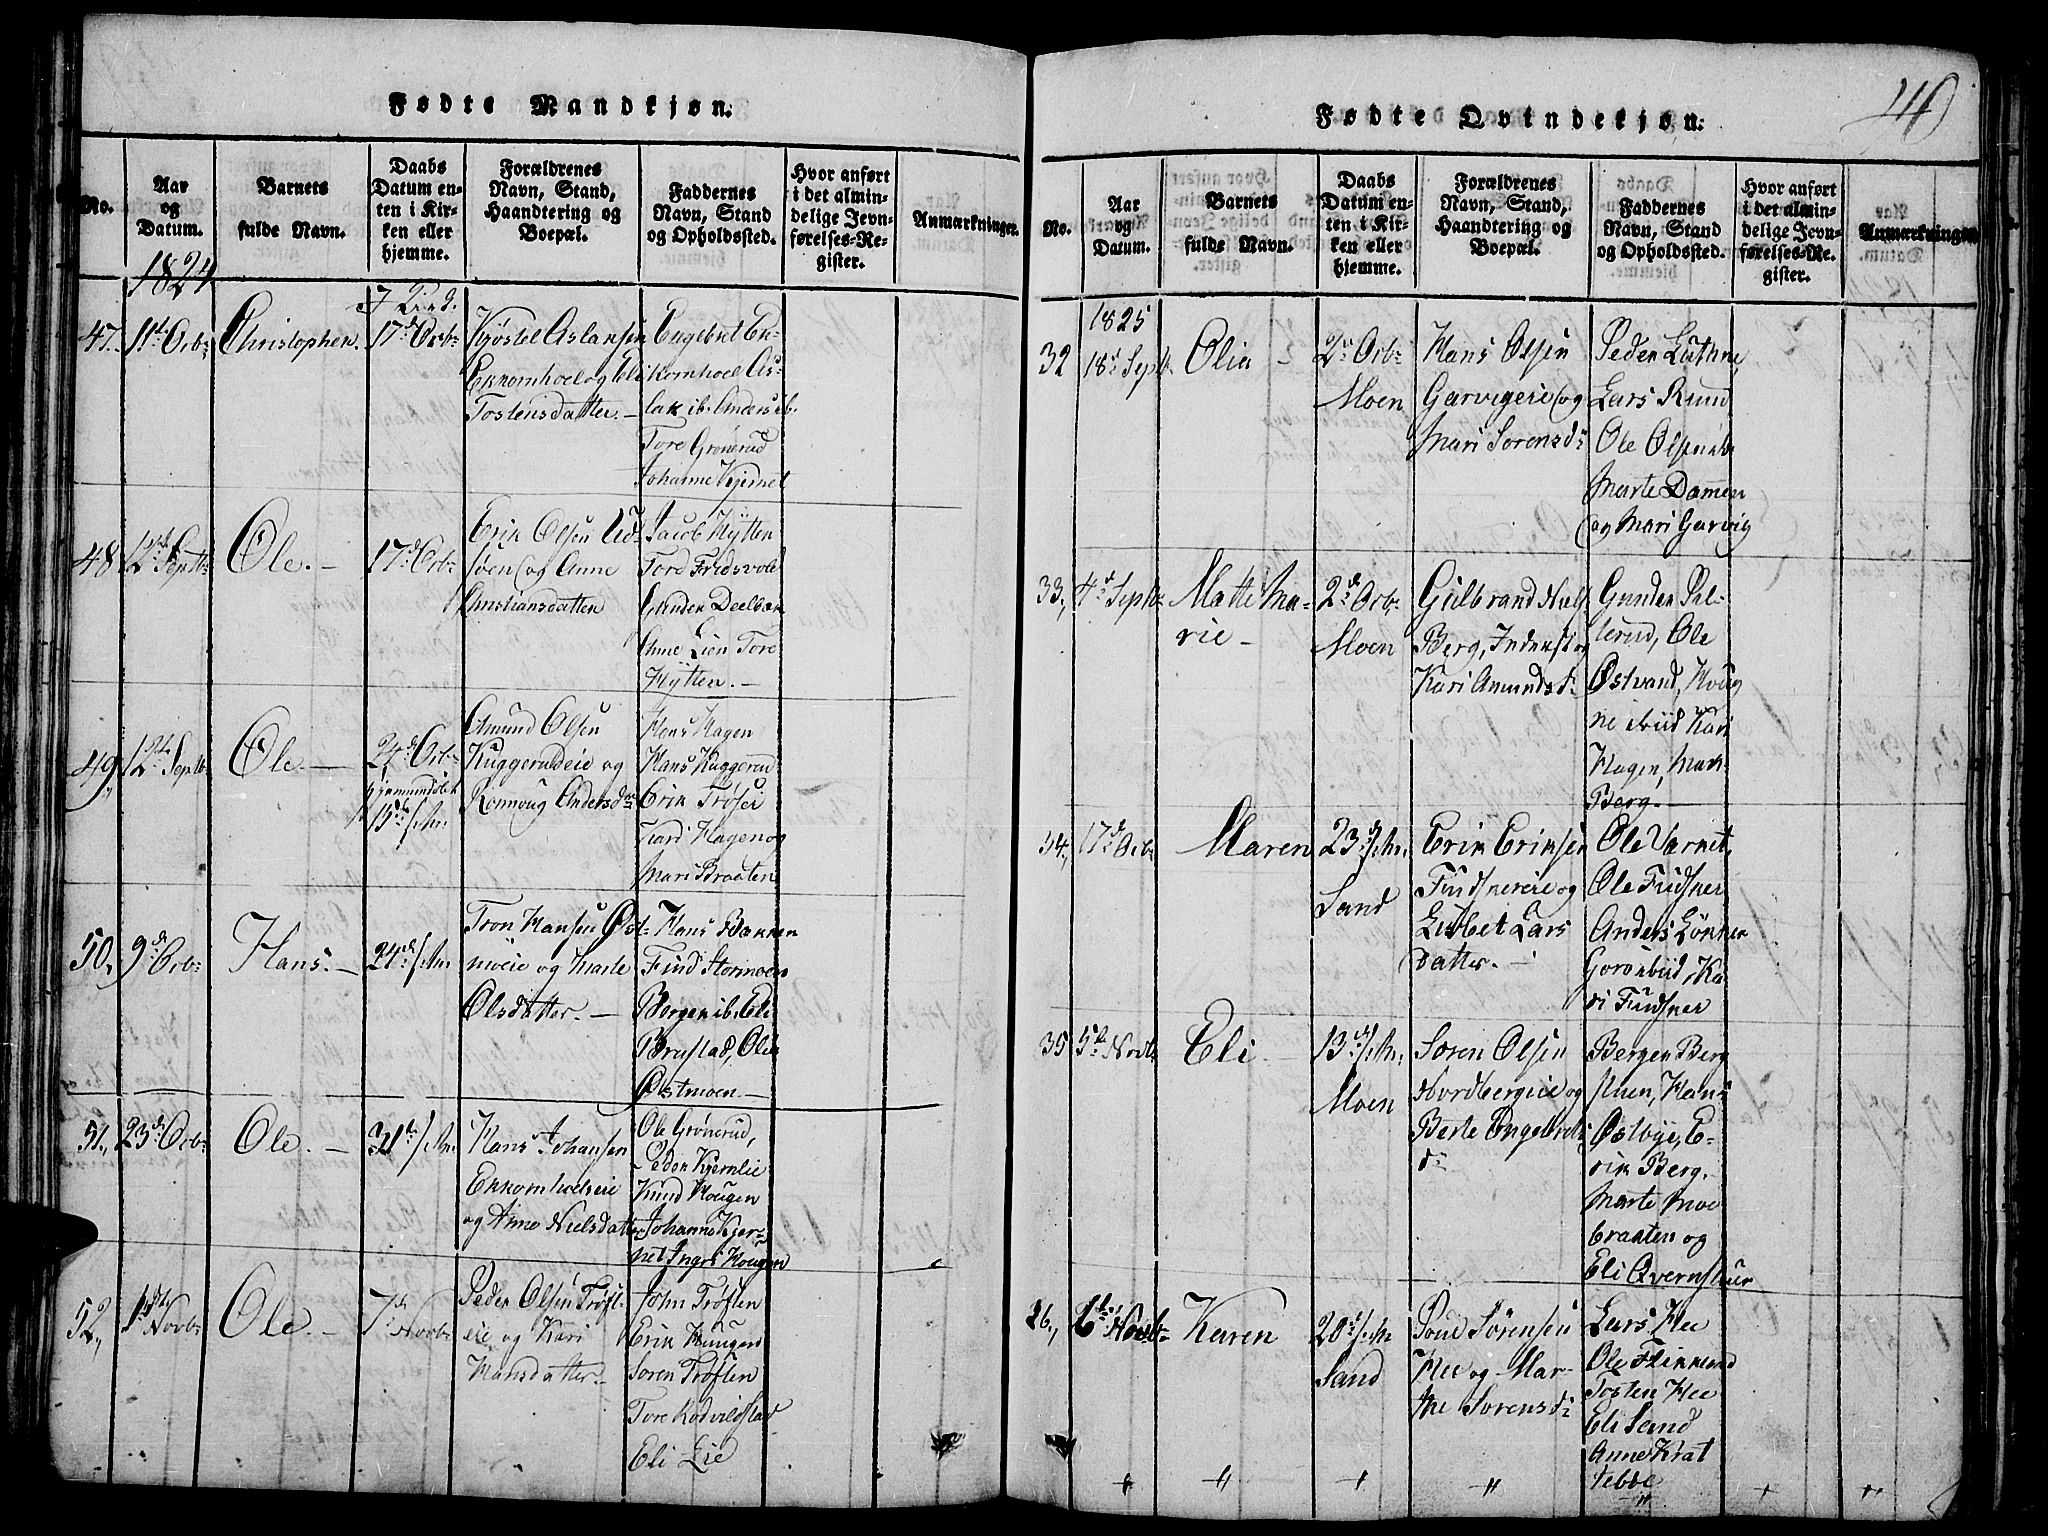 Fødte Mandkjøn.
No.
Aar
og
Datum.
Barnets
fulde Navn.
Daabs
Datum en-
ten i Kir-
ken eller
hjemme.
Forældrenes
Navn, Stand,
Haandtering og
Boepæl.
Faddernes
Navn, Stand
og Opholdssted.
Hvor anført
i det almin-
delige Jevn-
førelses-Re-
gister.
Anmærkninger.
1824
47.
11te Octbr
Christopher.
17de Octbr
Kjøstel Aslaksen
Ekkornhoel og Eli
Tostensdatter.
Engebret Ek-
kornhoel As-
lak ib. Anders ib.
Tore Grönerud
Johanne Kjernet
48
12te Septbr
Ole.
17de Octbr
Erik Olsen Ud-
søen og Anne
Christiansdatter
Jacob Hytten
Tore Fridsvold
Gunder Deelbæk
Anne Lien Tore
Hytten.
49
12te Septbr
Ole.
24de Octbr
Amund Olsen
Kuggerudeie og
Ronnoug Andersdr
Hans Hagen
Hans Kuggerud
Erik Trøser
Kari Hagen og
Mari Braaten
50.
9de Octbr
Hans.
24de
Tron Hansen Øst-
moeie og Marte
Olsdatter.
Hans Bakken
Find Stormoen
Berger ib. Eli
Brustad, Olia
Østmoen
51.
23de Octbr
Ole.
31te
Hans Johansen
Ekkornholseie
og Anne Nielsdatter
Ole Grönerud,
Peder Kjernlie
Knud Hougen
Johanne Kjer-
net Ingri Hougen
52.
1ste Novbr
Ole.
7de Novbr
Peder Olsen Trøft-
eie og Kari
Hansdatter.
John Trøften
Erik Haugen
Soren Trøften
Tore Kodvildstad
Eli Lie
Fødte Qvindekjøn.
No.
Aar
og
Datum.
Barnets
fulde Navn.
Daabs
Datum en-
ten i Kir-
ken eller
hjemme.
Forældrenes
Navn, Stand,
Haandtering og
Boepæl.
Faddernes
Navn, Stand
og Opholdssted.
Hvor anført
i det almin-
delige Jevn-
førelses-Re-
gister.
Anmærkninger
1825
32
18de Septb.
Olia
2den Octbr
Moen
Hans Olsen
Garvigeie og
Mari Sorensdr
Peder Luthne,
Lars Rund
Ole Olsen ib.
Marte Dammen
og Mari Garvig
33.
4de Septbr
Matte Ma-
rie
2de Octbr
Moen
Gulbrand Niels
Berg, Inderst og
Kari Amundsdr
Gunder Pel-
lerud, Ole
Østvand, Houg
ne ibid Kari
Hagen, Mari
Berg.
34.
17de Octbr
Maren
23de
Sand
Erik Eriksen
Fuudsnereie og
Lisbet Lars
datter.
Ole Varnet,
Ole Fuudsner
Anders Lønner
Goro ibid, Ka
ri Fuudsner
35
5te Novbr
Eli
13de
Moen
Soren Olsen
Nordbergeie og
Berte Engebrets
dr
Berger Berg
Hans
Østbye, E-
rik Berg.
Marte Moe
braaten og
Eli Qvernstuer
36.
6te Novbr
Karen
20de
Sand
Poul Sørensen
Hee og Mar-
the Sorensdr
Lars Hee
Ole Flikkerud
Tosten Hee
Eli Sand
Anne Krat
tebøe